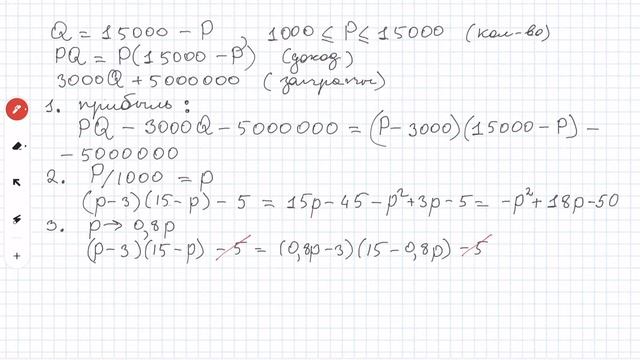 Q = 15000 - P, 1000 ≤ P ≤ 15000 (кол-во)
PQ = P(15000 - P) (доход)
3000Q + 5000000 (затраты)
1. прибыль:
PQ - 3000Q - 5000000 = (P - 3000)(15000 - P) -
- 5000000
2. P/1000 = p
(p-3)(15-p) - 5 = 15p - 45 - p² + 3p - 5 = -p² + 18p - 50
3. p → 0,8p
(p-3)(15-p) - 5 = (0,8p-3)(15-0,8p) - 5